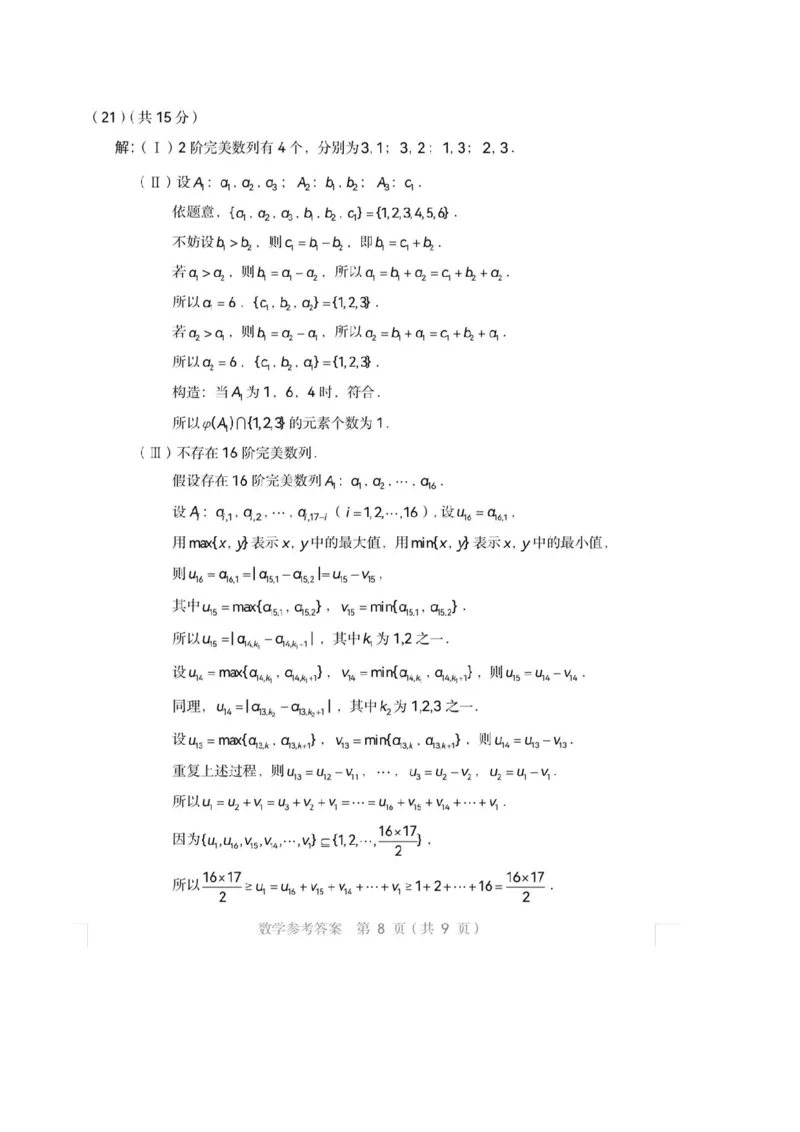 （21）（共15分）
解：（Ⅰ）2阶完美数列有4个，分别为3，1；3，2；1，3；2，3．
（Ⅱ）设A₁：a₁，a₂，a₃；A₂：b₁，b₂；A₃：c₁．
依题意，{a₁，a₂，a₃，b₁，b₂，c₁}={1,2,3,4,5,6}．
不妨设b₁>b₂，则c₁=b₁-b₂，即b₁=c₁+b₂．
若a₁>a₂，则b₁=a₁-a₂，所以a₁=b₁+a₂=c₁+b₂+a₂．
所以a₁=6．{c₁，b₂，a₂}={1,2,3}．
若a₂>a₁，则b₁=a₂-a₁，所以a₂=b₁+a₁=c₁+b₂+a₁．
所以a₂=6．{c₁，b₂，a₁}={1,2,3}．
构造：当A₁为1，6，4时，符合．
所以φ(A₁)∩{1,2,3}的元素个数为1．
（Ⅲ）不存在16阶完美数列．
假设存在16阶完美数列A₁：a₁，a₂，⋯，a₁₆．
设Aᵢ：a_{i,1}，a_{i,2}，⋯，a_{i,17-i}（i=1,2,⋯,16），设u₁₆=a_{16,1}，
用max{x，y}表示x，y中的最大值，用min{x，y}表示x，y中的最小值，
则u₁₆=a_{16,1}=|a_{15,1}-a_{15,2}|=u₁₅-v₁₅，
其中u₁₅=max{a_{15,1}，a_{15,2}}，v₁₅=min{a_{15,1}，a_{15,2}}．
所以u₁₅=|a_{14,k₁}-a_{14,k₁+1}|，其中k₁为1,2之一．
设u₁₄=max{a_{14,k₁}，a_{14,k₁+1}}，v₁₄=min{a_{14,k₁}，a_{14,k₁+1}}，则u₁₅=u₁₄-v₁₄．
同理，u₁₄=|a_{13,k₂}-a_{13,k₂+1}|，其中k₂为1,2,3之一．
设u₁₃=max{a_{13,k}，a_{13,k+1}}，v₁₃=min{a_{13,k}，a_{13,k+1}}，则u₁₄=u₁₃-v₁₃．
重复上述过程，则u₁₃=u₁₂-v₁₁，⋯，u₃=u₂-v₂，u₂=u₁-v₁．
所以u₁=u₂+v₁=u₃+v₂+v₁=⋯=u₁₆+v₁₅+v₁₄+⋯+v₁．
因为{u₁,u₁₆,v₁₅,v₁₄,⋯,v₁}⊆{1,2,⋯,16×17/2}，
所以16×17/2≥u₁=u₁₆+v₁₅+v₁₄+⋯+v₁≥1+2+⋯+16=16×17/2．
数学参考答案 第 8 页（共 9 页）